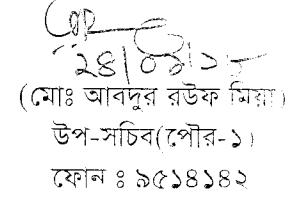 (মোঃ আবদুর রউফ মিয়া)
উপ-সচিব(পৌর-১)
ফোন ঃ ৯৫১৪১৪২